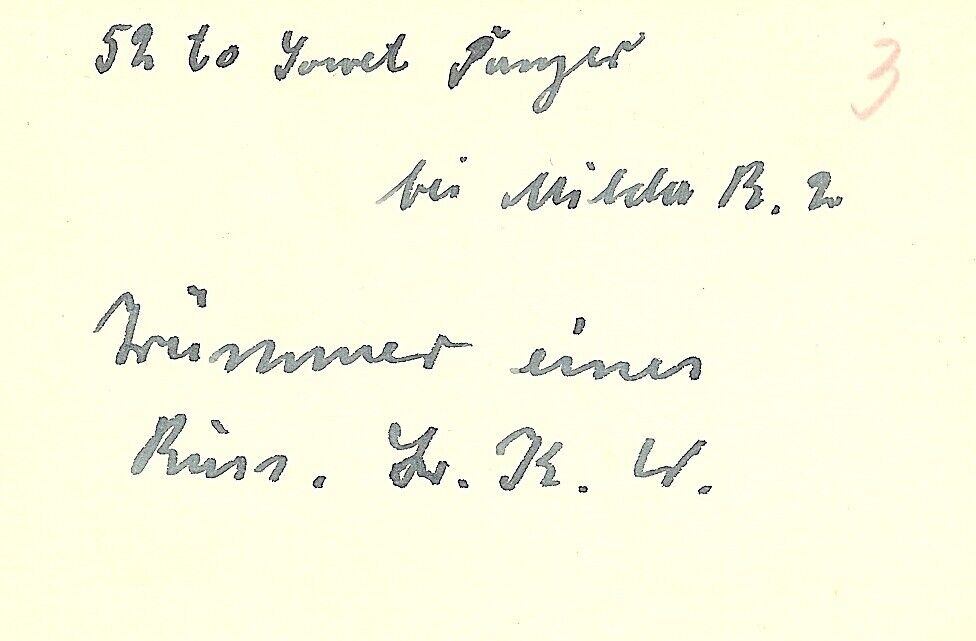 52 to Sowet Panzer
3
bei Milda R. 2.
Trümmer eines
Russ. Lr. K. W.